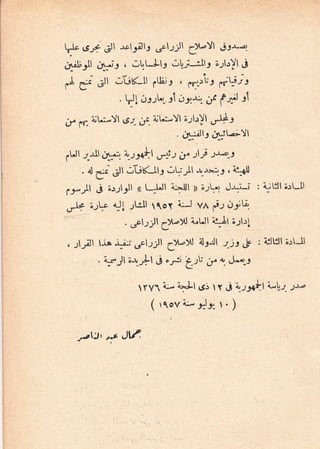 بصندوق الاصلاح الزراعى والقواعد التى تجرى عليها
فى الإدارة والمشتريات والحسابات ، وتعيين الموظفين
وترقياتهم وتأديبهم ، ونظام المكافآت التى تمنح لهم
أو لغيرهم ممن يندبون أو يعارون إليها .
ولمجلس الإدارة الاستعانة بمن يرى الاستعانة بهم من
الاخصائيين والفنيين .
ويصدر قرار من رئيس الجمهورية بتعيين المدير العام
للهيئة ، وبتحديد المرتبات والمكافآت التى تمنح له .
المادة الثانية : تستبدل بعبارة « اللجنة العليا » الواردة فى المرسوم
بقانون رقم ٧٨ لسنة ١٩٥٢ المشار إليه عبارة مجلس
إدارة الهيئة العامة للاصلاح الزراعى .
المادة الثالثة : على وزير الدولة للاصلاح الزراعى تنفيذ هذا القرار ،
ويعمل به من تاريخ نشره فى الجريدة الرسمية .
صدر برياسة الجمهورية فى ١٢ ذى الحجة سنة ١٣٧٦
( ١٠ يوليو سنة ١٩٥٧ )
جمال عبد الناصر